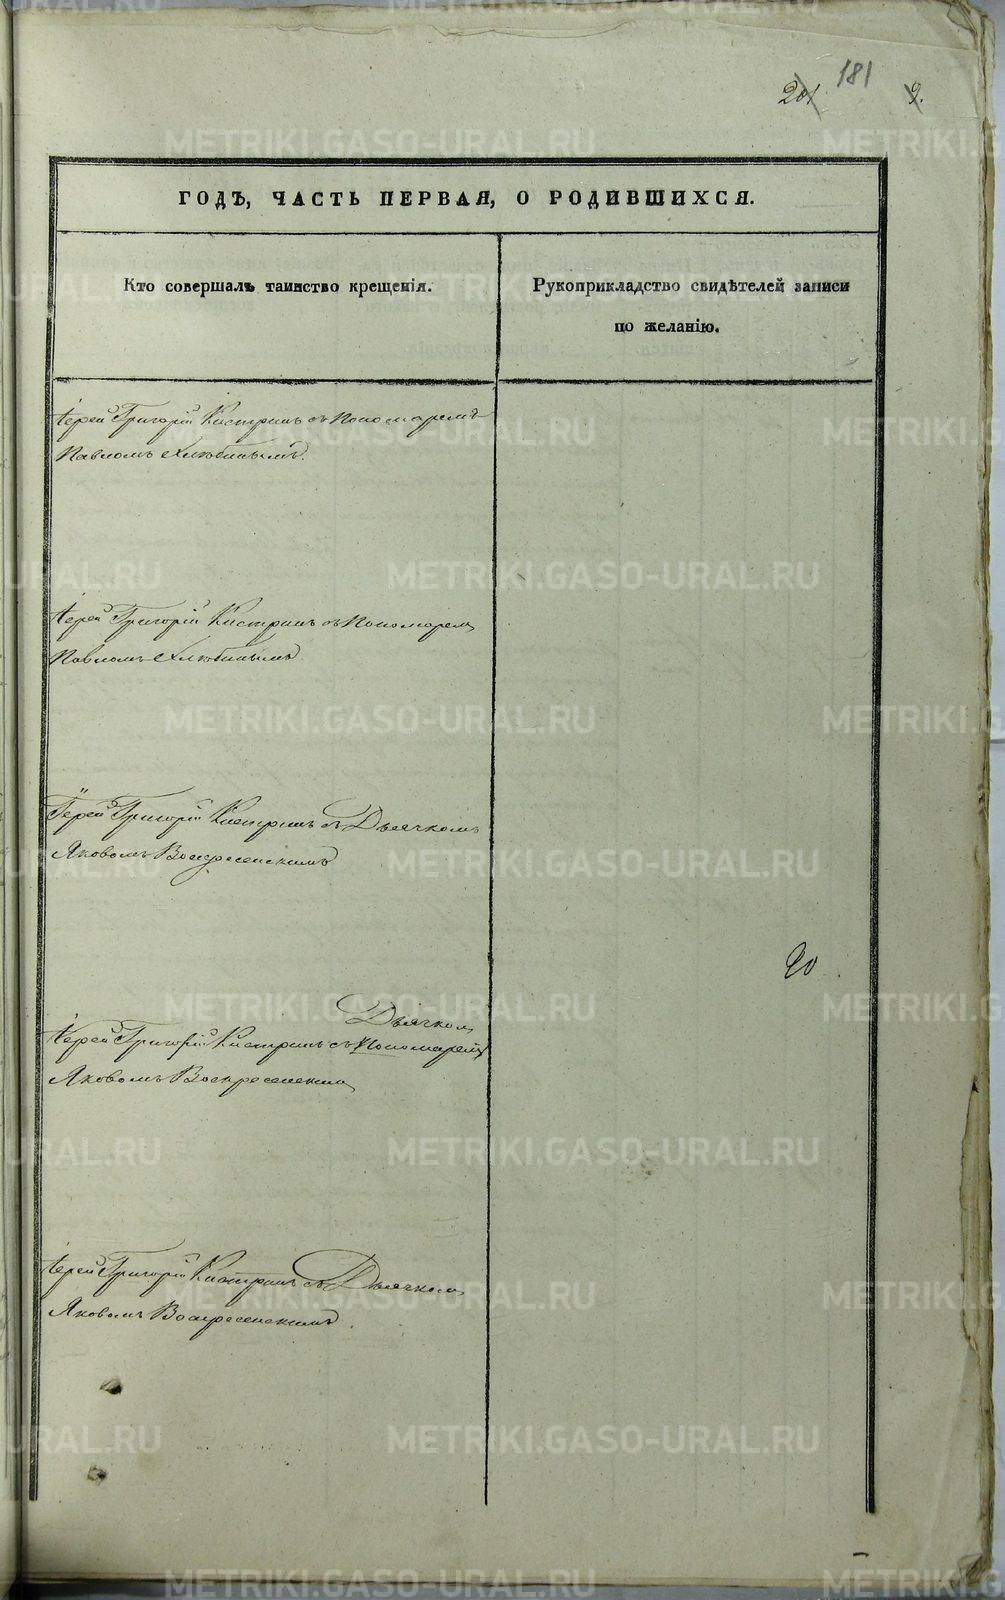 181
201 9.
ГОДЪ, ЧАСТЬ ПЕРВАЯ, О РОДИВШИХСЯ.
Кто совершалъ таинство крещенія.
Рукоприкладство свидѣтелей записи
по желанію.
Іерей Григорій Кистринъ съ Пономаремъ
Павломъ Хлюбинымъ.
Іерей Григорій Кистринъ съ Пономарем
Павломъ Хлюбинымъ
Іерей Григорій Кистринъ съ Дьячкомъ
Яковомъ Воскресенскимъ
20
Дьячком
Іерей Григорій Кистринъ съ Пономарем
Яковомъ Воскресенским
Іерей Григорій Кистринъ съ Дьячком
Яковомъ Воскресенскимъ.
METRIKI.GASO-URAL.RU